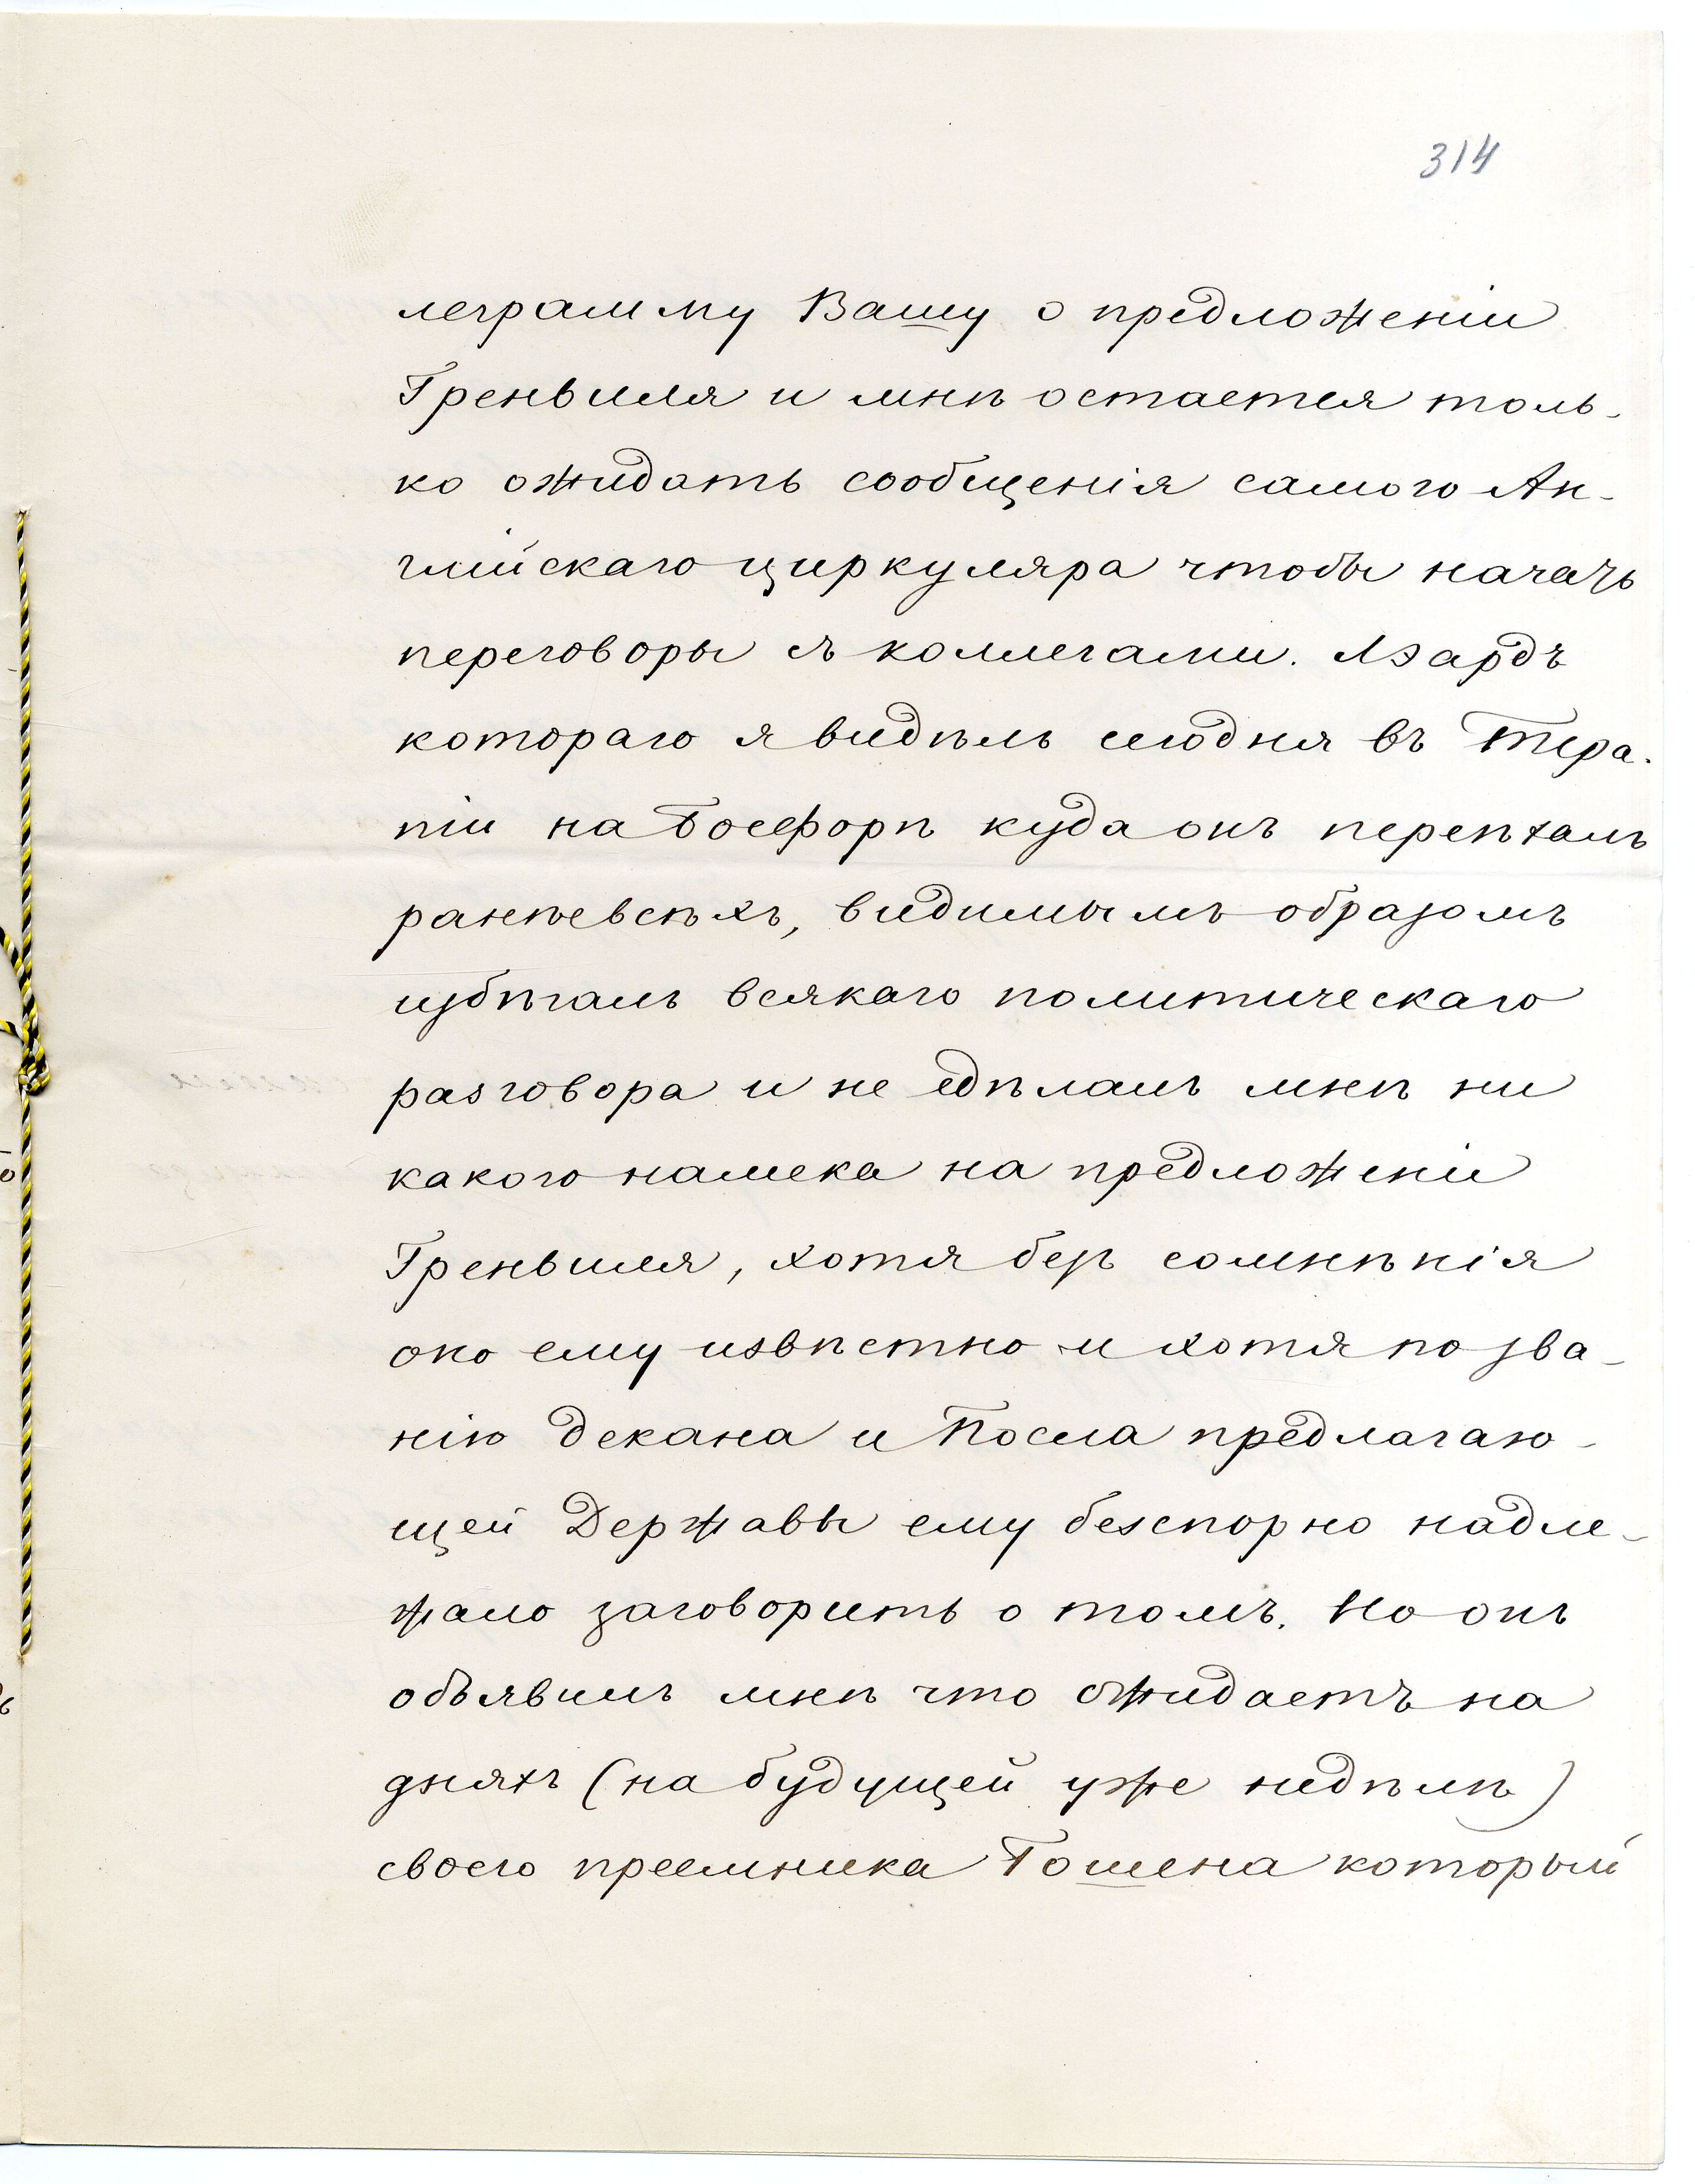 314
леграмму Вашу о предложеніи
Гренвиля и мнѣ остается толь-
ко ожидать сообщенія самого Ан-
глійскаго циркуляра чтобы начать
переговоры съ коллегами. Лэардъ
котораго я видѣлъ сегодня въ Тера-
піи на Босфорѣ куда онъ переѣхалъ
ранѣе всѣхъ, видимымъ образомъ
избѣгалъ всякаго политическаго
разговора и не сдѣлалъ мнѣ ни
какого намека на предложеніи
Гренвиля, хотя безъ сомнѣнія
оно ему извѣстно и хотя по зва-
нію декана и Посла предлагаю-
щей Державы ему безспорно надле-
жало заговорить о томъ. Но онъ
объявилъ мнѣ что ожидаетъ на
дняхъ (на будущей уже недѣлѣ)
своего преемника Гошена который